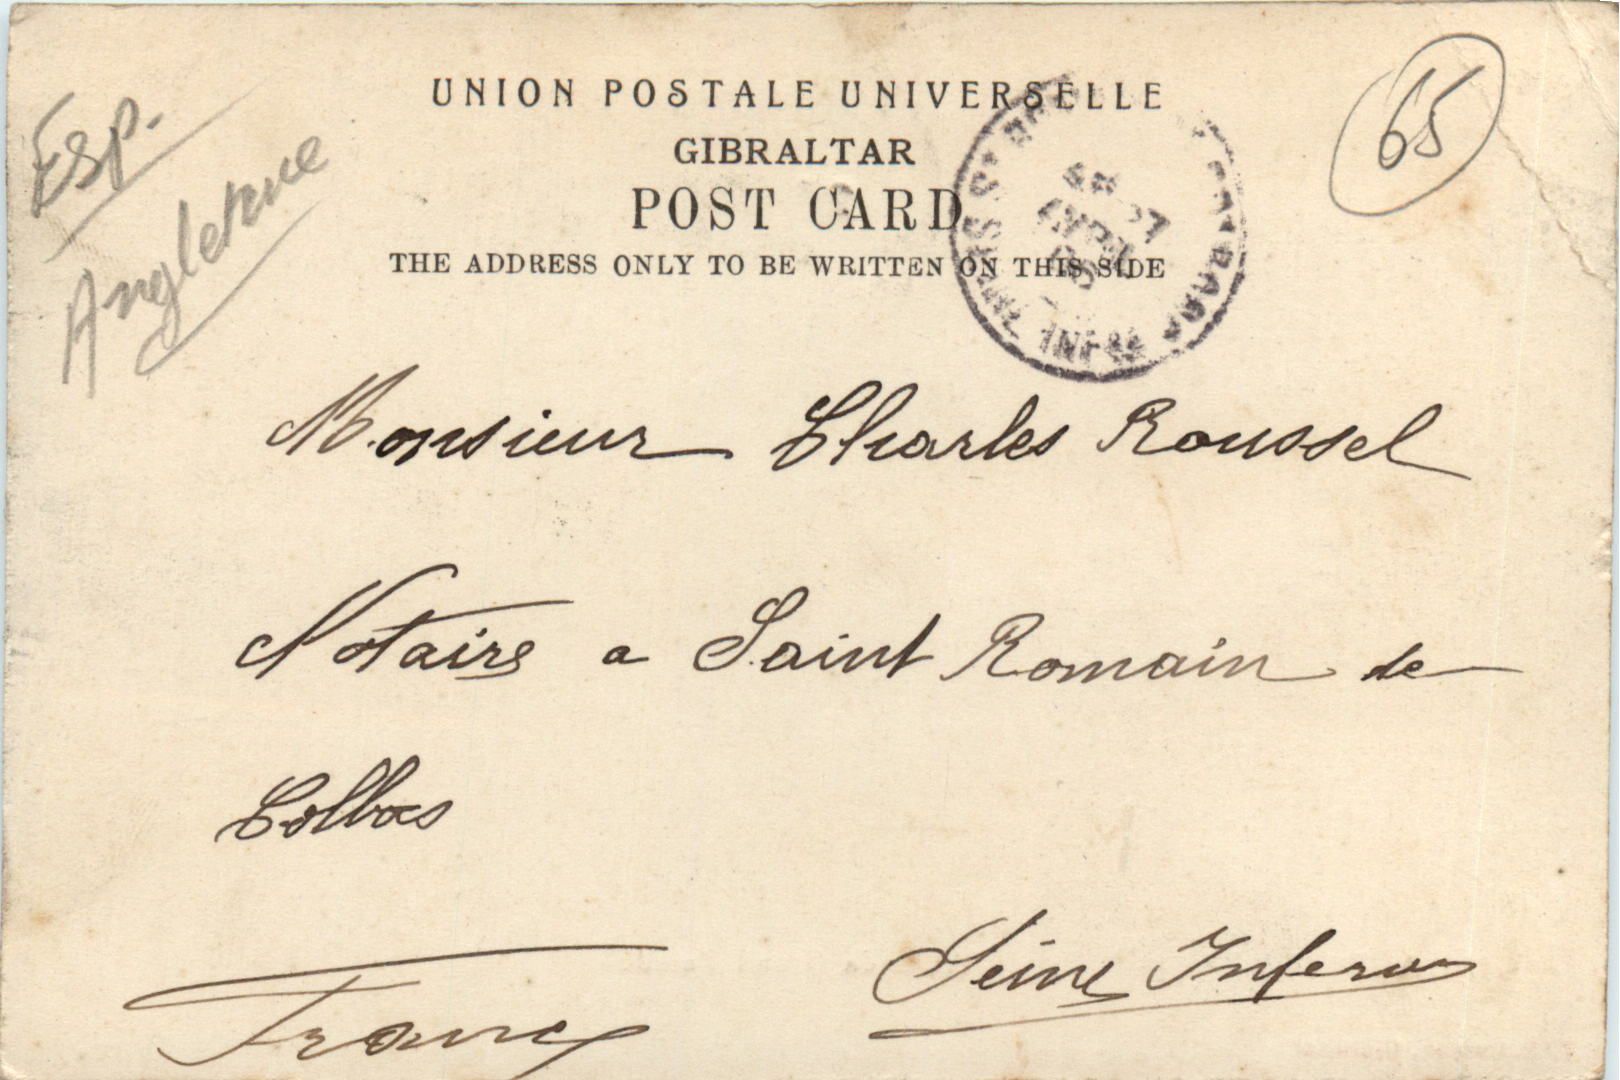 UNION POSTALE UNIVERSELLE
GIBRALTAR
POST CARD
THE ADDRESS ONLY TO BE WRITTEN ON THIS SIDE
Esp.
Angleterre
65
Monsieur Charles Roussel
Notaire a Saint Romain de
Colbos
Seine Inferre
France